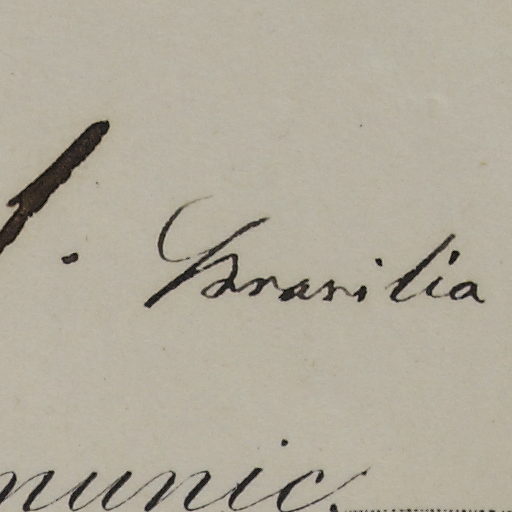 Brasilia
munic.